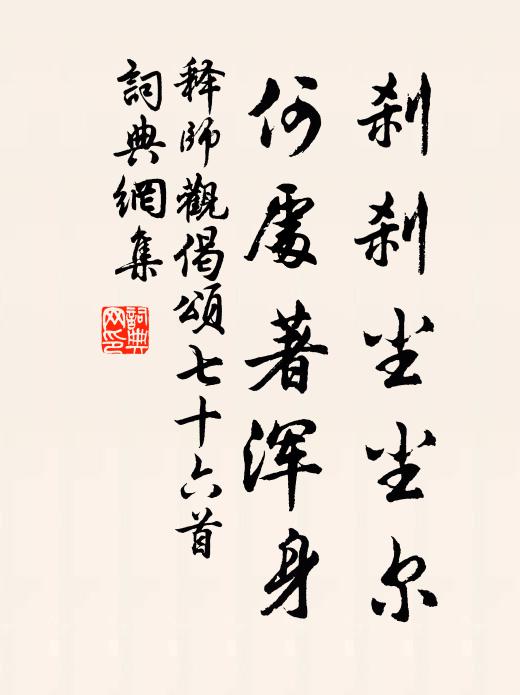 刹刹尘尘尔
何處著浑身
释師觀偈頌七十六首
詞典網集
詞典网印